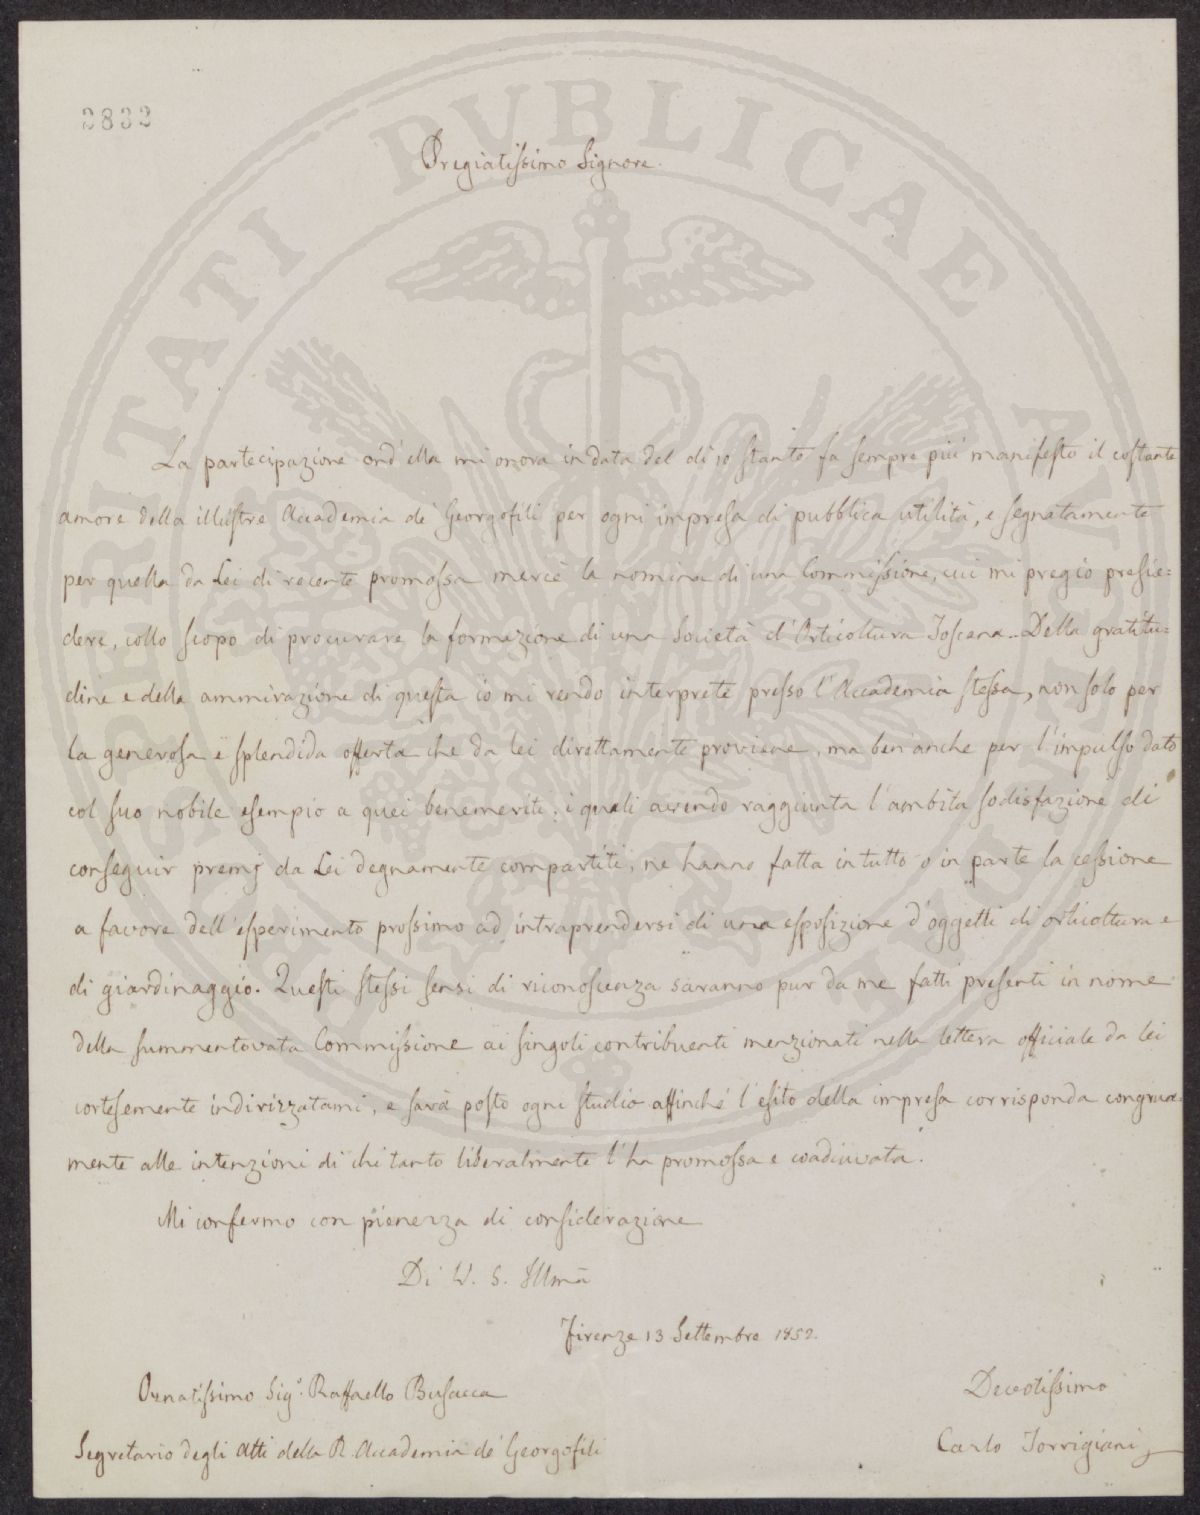 2832
Pregiatissimo Signore.
La partecipazione ond'ella mi onora in data del dì 10 stante fa sempre più manifesto il costante
amore della illustre Accademia de' Georgofili per ogni impresa di pubblica utilità, e segnatamente
per quella da Lei di recente promossa mercè la nomina di una Commissione, cui mi pregio presie=
dere, collo scopo di procurare la formazione di una Società d'Orticoltura Toscana. Della gratitu=
dine e della ammirazione di questa io mi rendo interprete presso l'Accademia stessa, non solo per
la generosa e splendida offerta che da lei direttamente proviene, ma ben'anche per l'impulso dato
col suo nobile esempio a quei benemeriti, i quali avendo raggiunta l'ambita sodisfazione di
conseguir premj da Lei degnamente compartiti, ne hanno fatta in tutto o in parte la cessione
a favore dell'esperimento prossimo ad intraprendersi di una esposizione d'oggetti di orticoltura e
di giardinaggio. Questi stessi sensi di riconoscenza saranno pur da me fatti presenti in nome
della summentovata Commissione ai singoli contribuenti menzionati nella lettera officiale da lei
cortesemente indirizzatami, e sarà posto ogni studio affinché l'esito della impresa corrisponda congrua=
mente alle intenzioni di chi tanto liberalmente l'ha promossa e coadiuvata.
Mi confermo con pienezza di considerazione
Di V. S. Illma
Firenze 13 Settembre 1852.
Ornatissimo Sigr. Raffaello Busacca
Devotissimo
Segretario degli Atti della R. Accademia de' Georgofili
Carlo Torrigiani
PROSPERITATI PUBLICAE AUGENDAE